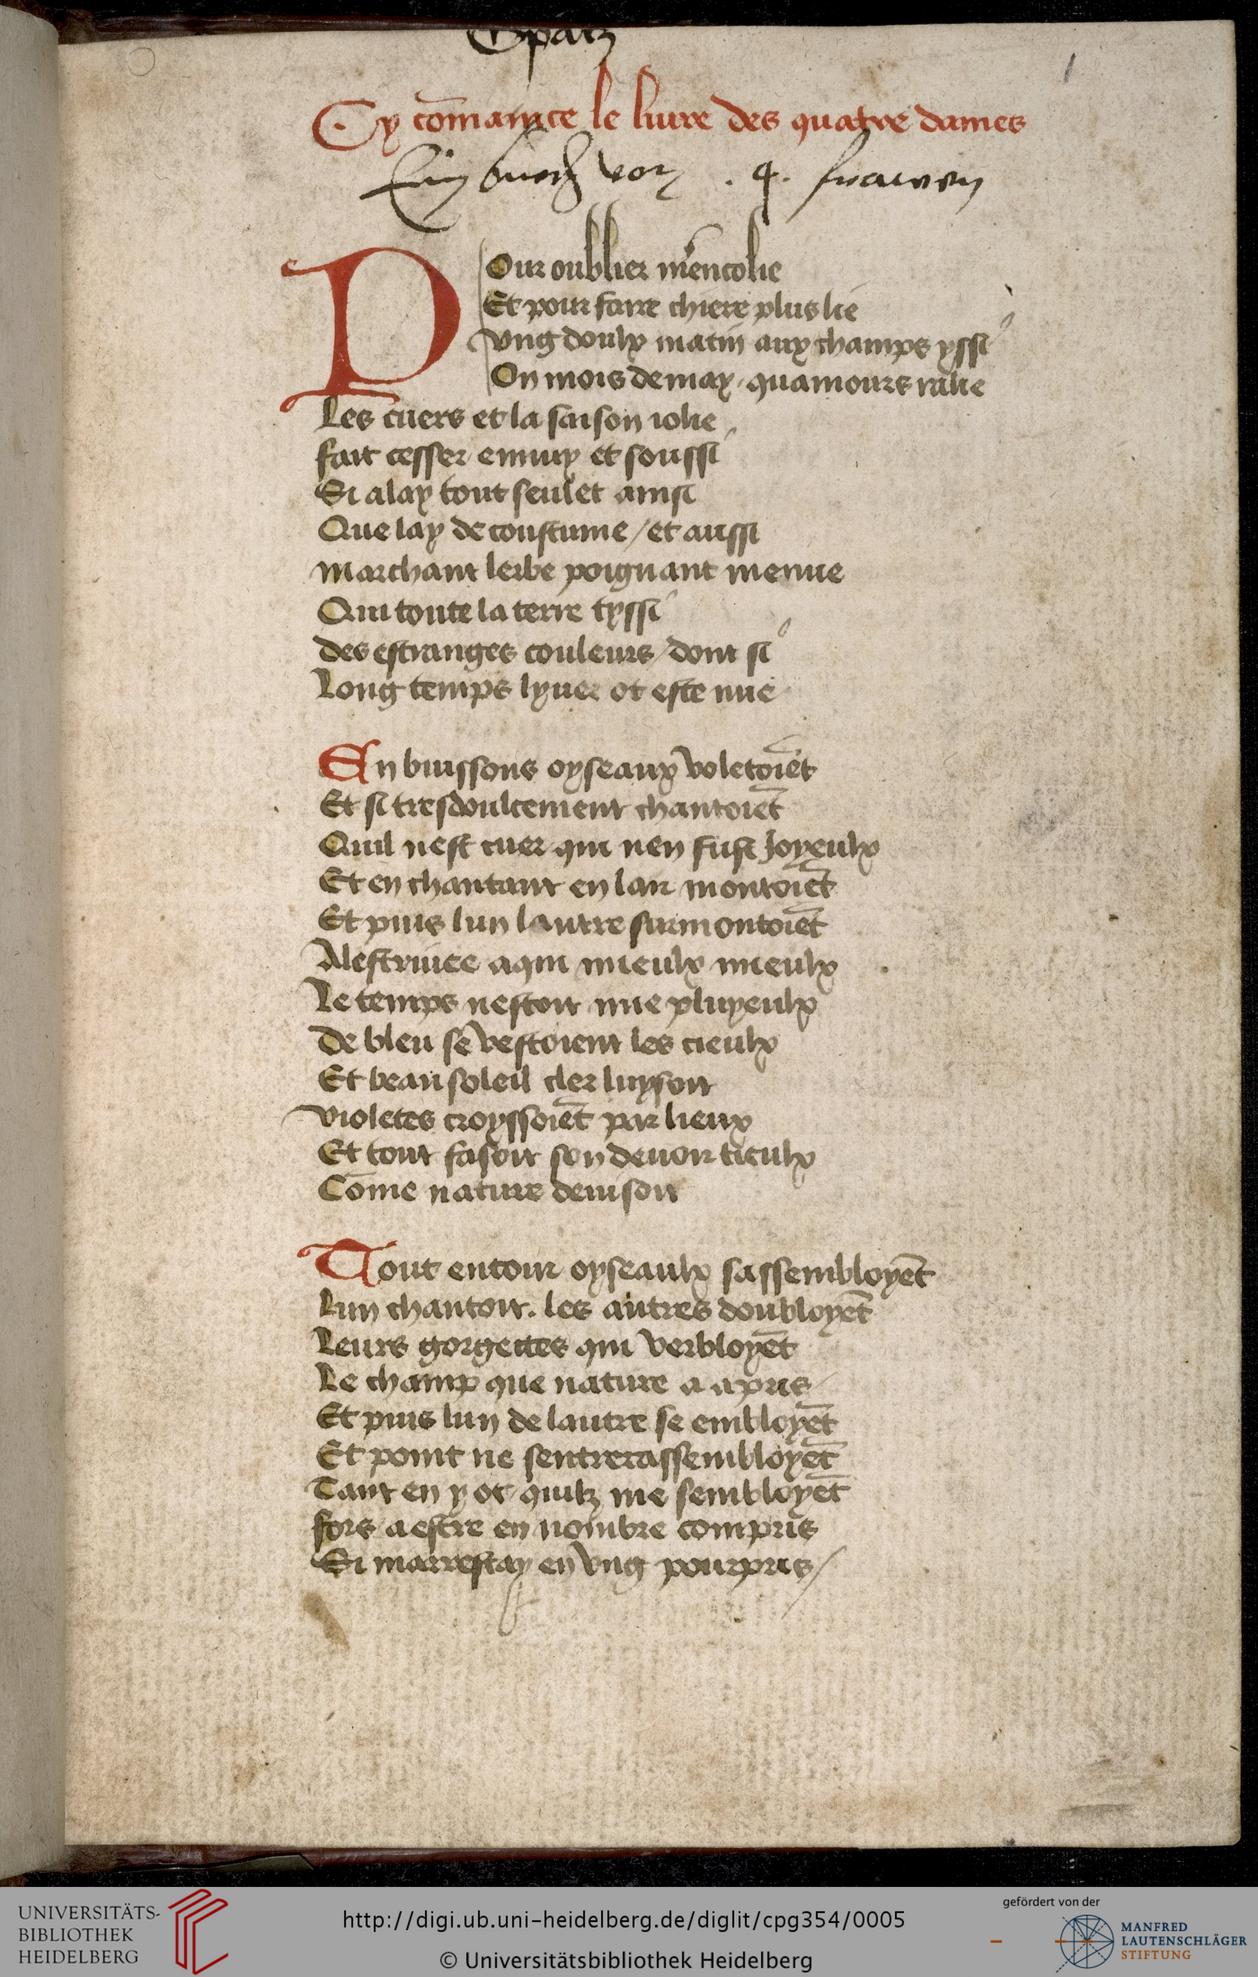 Cy co͞manıce le liure des quatre dames
Ein buch von . 4. frawen
POur oublier me͞rencolie
Et pour faire chiere plus lie
vng doulx matin aux champs yssi
On mois de may quamours ralie
Les cuers et la saison iolie
fait cesser ennuy et soussi
Si alay tout seulet ainsi
Que lay de coustume / et aussi
marchant lerbe poignant menue
Qui toute la terre tyssi
des estranges couleurs / dont si
Long temps lyuer ot este nue
En buissons oyseaux voletoie͞t
Et si tresdoulcement chantoie͞t
Quil nest cuer qui nen fust Joyeulx
Et en chantant en lair montoie͞t
Et puis lun lautre surmontoie͞t
Alestriuee aqui mieulx mieulx
Le temps nestoit mie pluyeulx
De bleu se vestoient les cieulx
Et beau soleil cler luysoit
violetes croyssoie͞t par lieux
Et tout fasoit son deuoir tieulx
Co͞me nature deuisoit
Tout entour oyseaulx sassembloye͞t
Lun chantoit. les autres doubloye͞t
Leurs gorgettes qui verbloye͞t
Le champ que nature a apris
Et puis lun de lautre se embloye͞t
Et point ne sentrerassembloye͞t
Tant en y ot quilz me sembloye͞t
fors a estre en nombre compris
Si marrestay en vng pourpris /
UNIVERSITÄTS-
BIBLIOTHEK
HEIDELBERG
http://digi.ub.uni-heidelberg.de/diglit/cpg354/0005
© Universitätsbibliothek Heidelberg
gefördert von der
MANFRED
LAUTENSCHLÄGER
STIFTUNG